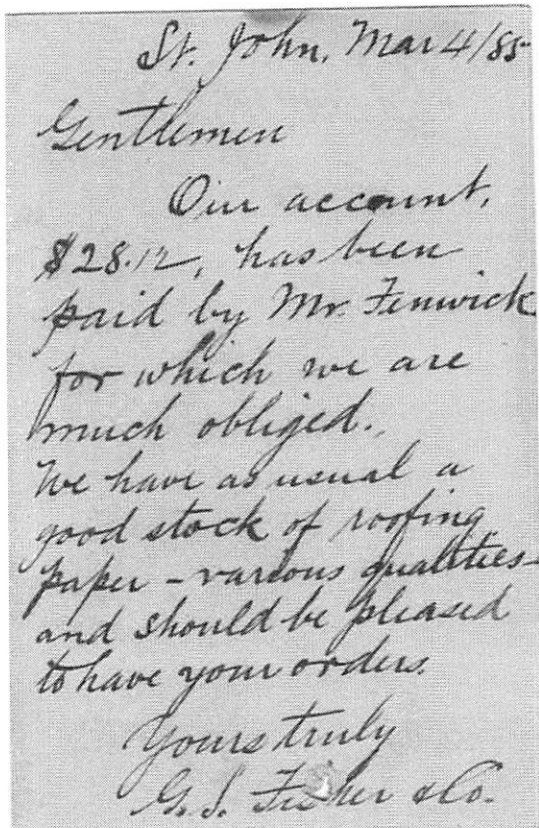 St. John, Mar 4/85
Gentlemen
Our account,
$28.12, has been
paid by Mr. Fenwick
for which we are
much obliged.
We have as usual a
good stock of roofing
paper - various qualities -
and should be pleased
to have your orders.
Yours truly
G. S. & Co.